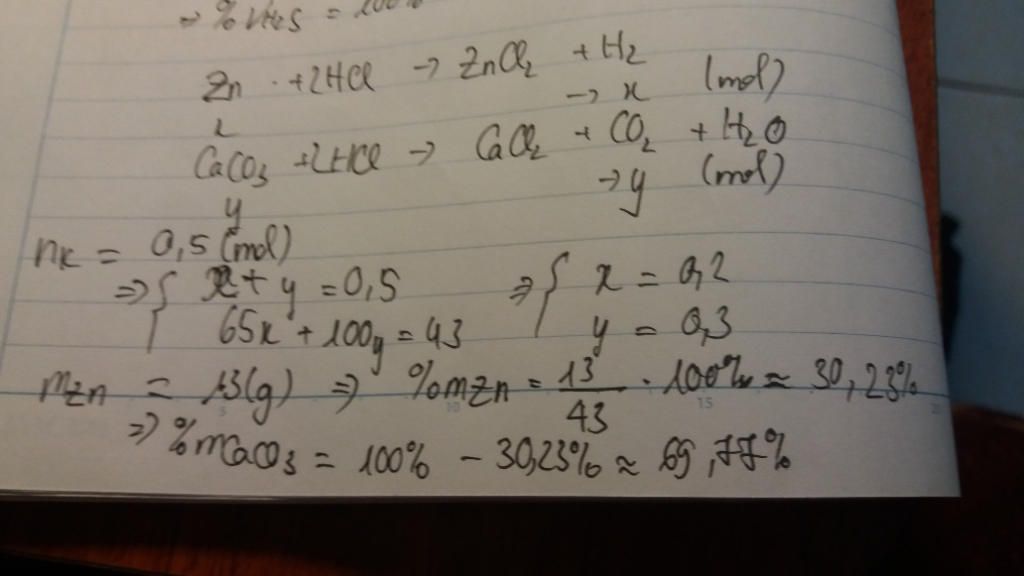 ⇒ % VH2S = 100%
Zn + 2HCl → ZnCl2 + H2
x → x (mol)
CaCO3 + 2HCl → CaCl2 + CO2 + H2O
y → y (mol)
nK = 0,5 (mol)
⇒ { x + y = 0,5 ⇒ { x = 0,2
65x + 100y = 43 y = 0,3
mZn = 13(g) ⇒ %mZn = 13/43 . 100% ≈ 30,23%
⇒ %mCaCO3 = 100% - 30,23% ≈ 69,77%